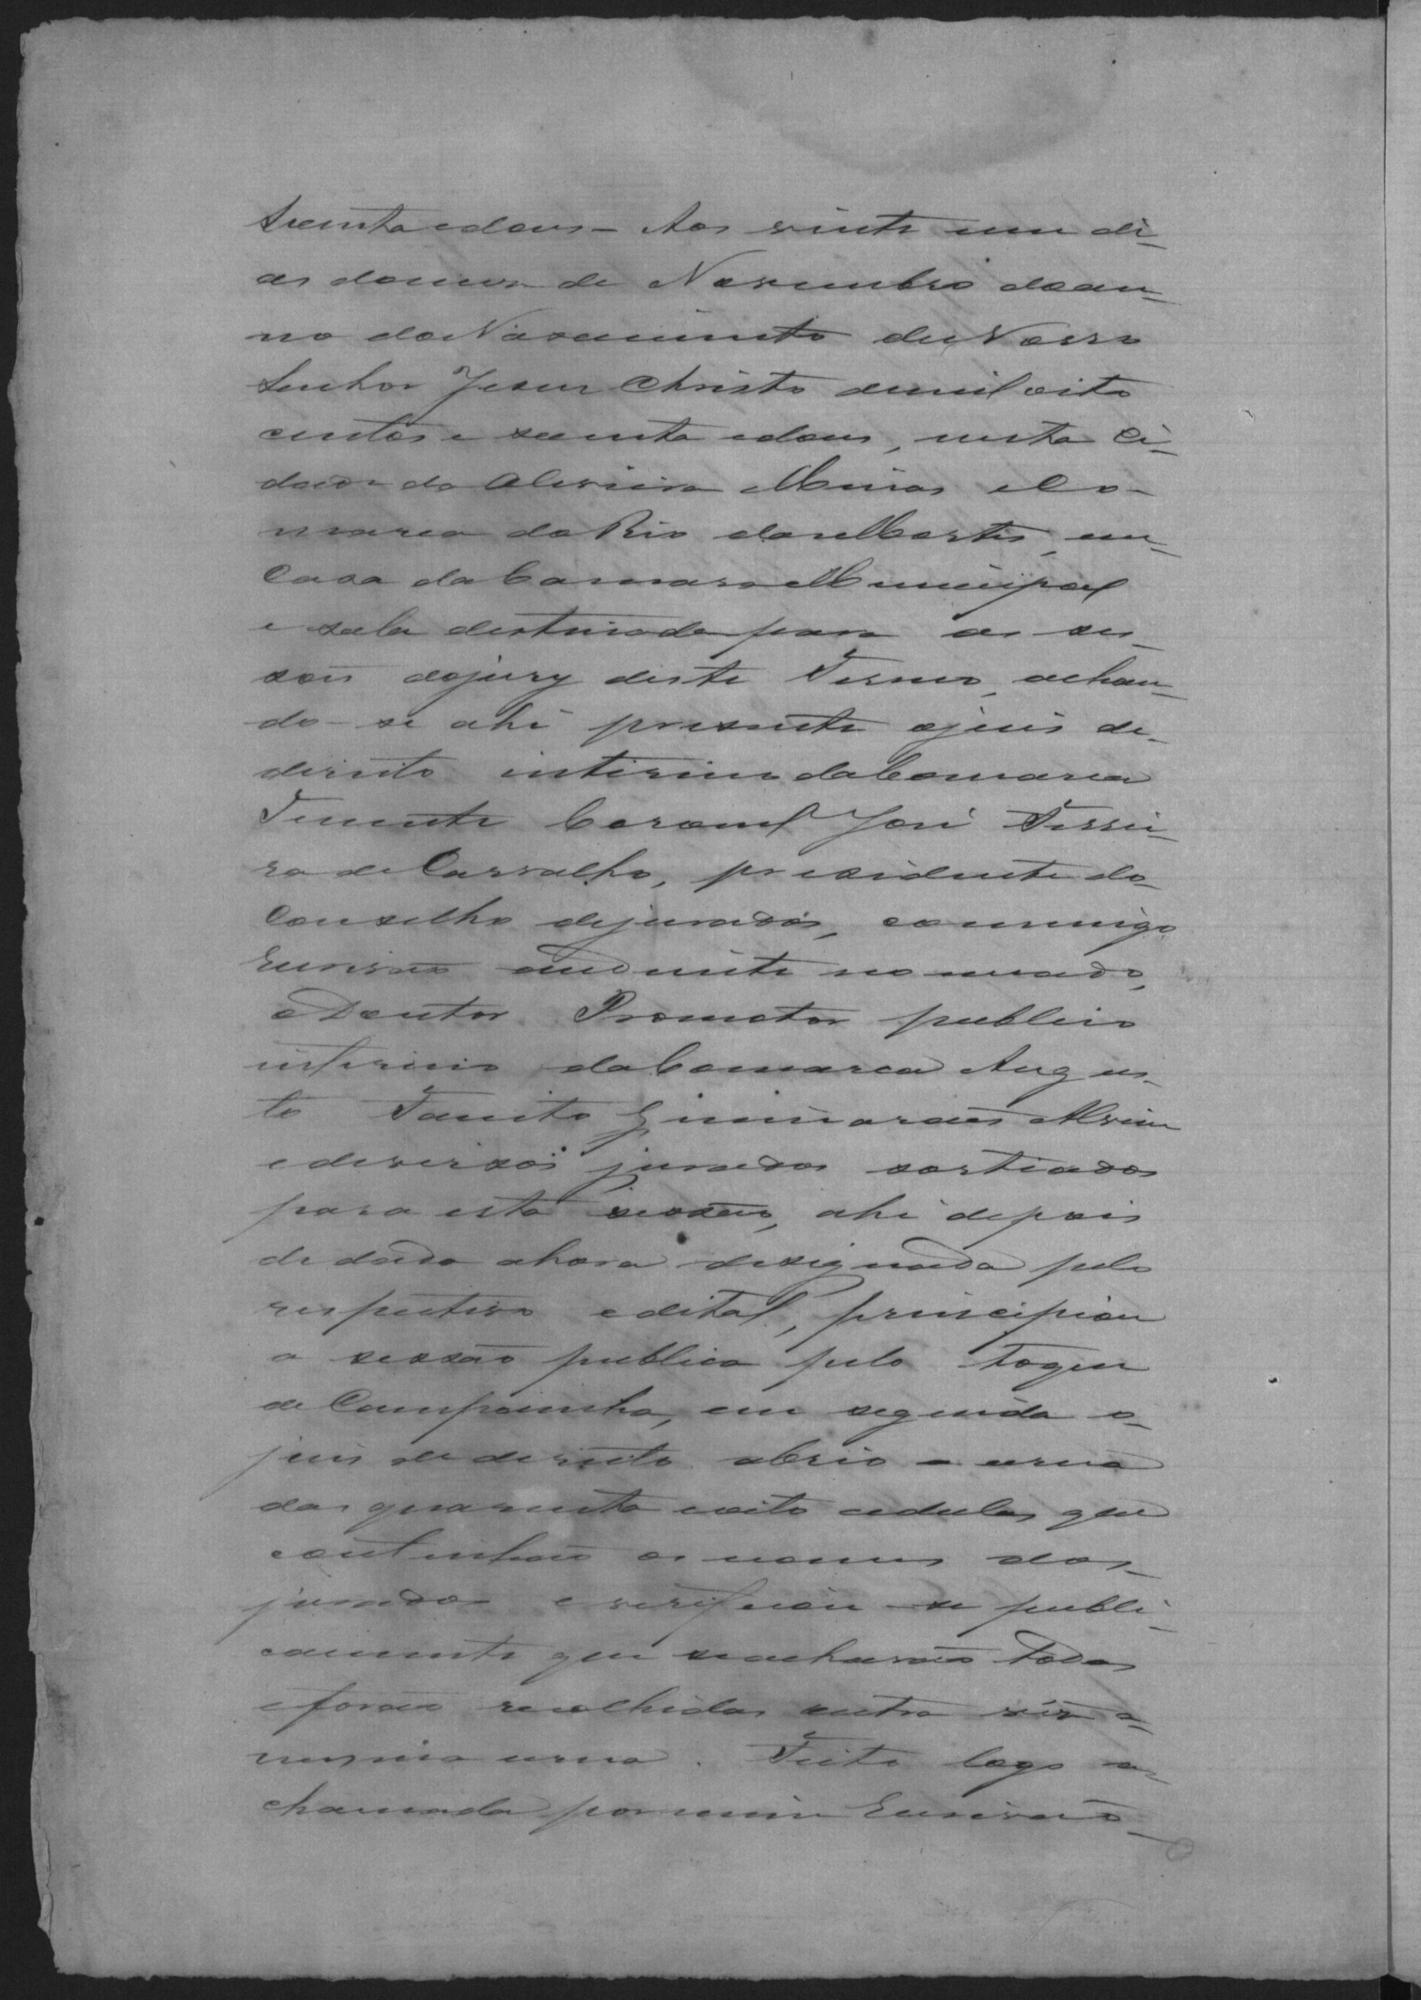 senta e dous = Aos vinte um di-
as do mes de Novembro do an-
no do Nascimento de Nosso
Senhor Jesus Christo de mil oito
centos e secenta e dous, nesta Ci-
dade da Oliveira Minas e Co-
marca do Rio das Mortes, em
Casa da Camara Municipal
e sala destinada para as ses-
sois do jury deste Termo, achan-
do-se ahi presente o juis de
dereito interino da Comarca
Tenente Coronel José Ferrei-
ra de Carvalho, presidente do
Conselho de jurados, commigo
Escrivão audiante nomeado,
o Doutor Promotor publico
interino da Comarca Augus-
to Tacito Guimaraes Alvim
e deversos jurados sortiados
para esta sessão, ahi depois
de dada a hora designada pelo
respectivo edital, principiou
a sessão publica pelo toque
de Campainha, em seguida o
juis de dereito abrio a urna
das quarenta e oito cedulas que
continhão os nomes dos
jurados e verificou-se publi-
camente que se acharão todas
e forão recolhidas outra ves a
mesma urna. Feito logo a
chamada por mim Escrivão